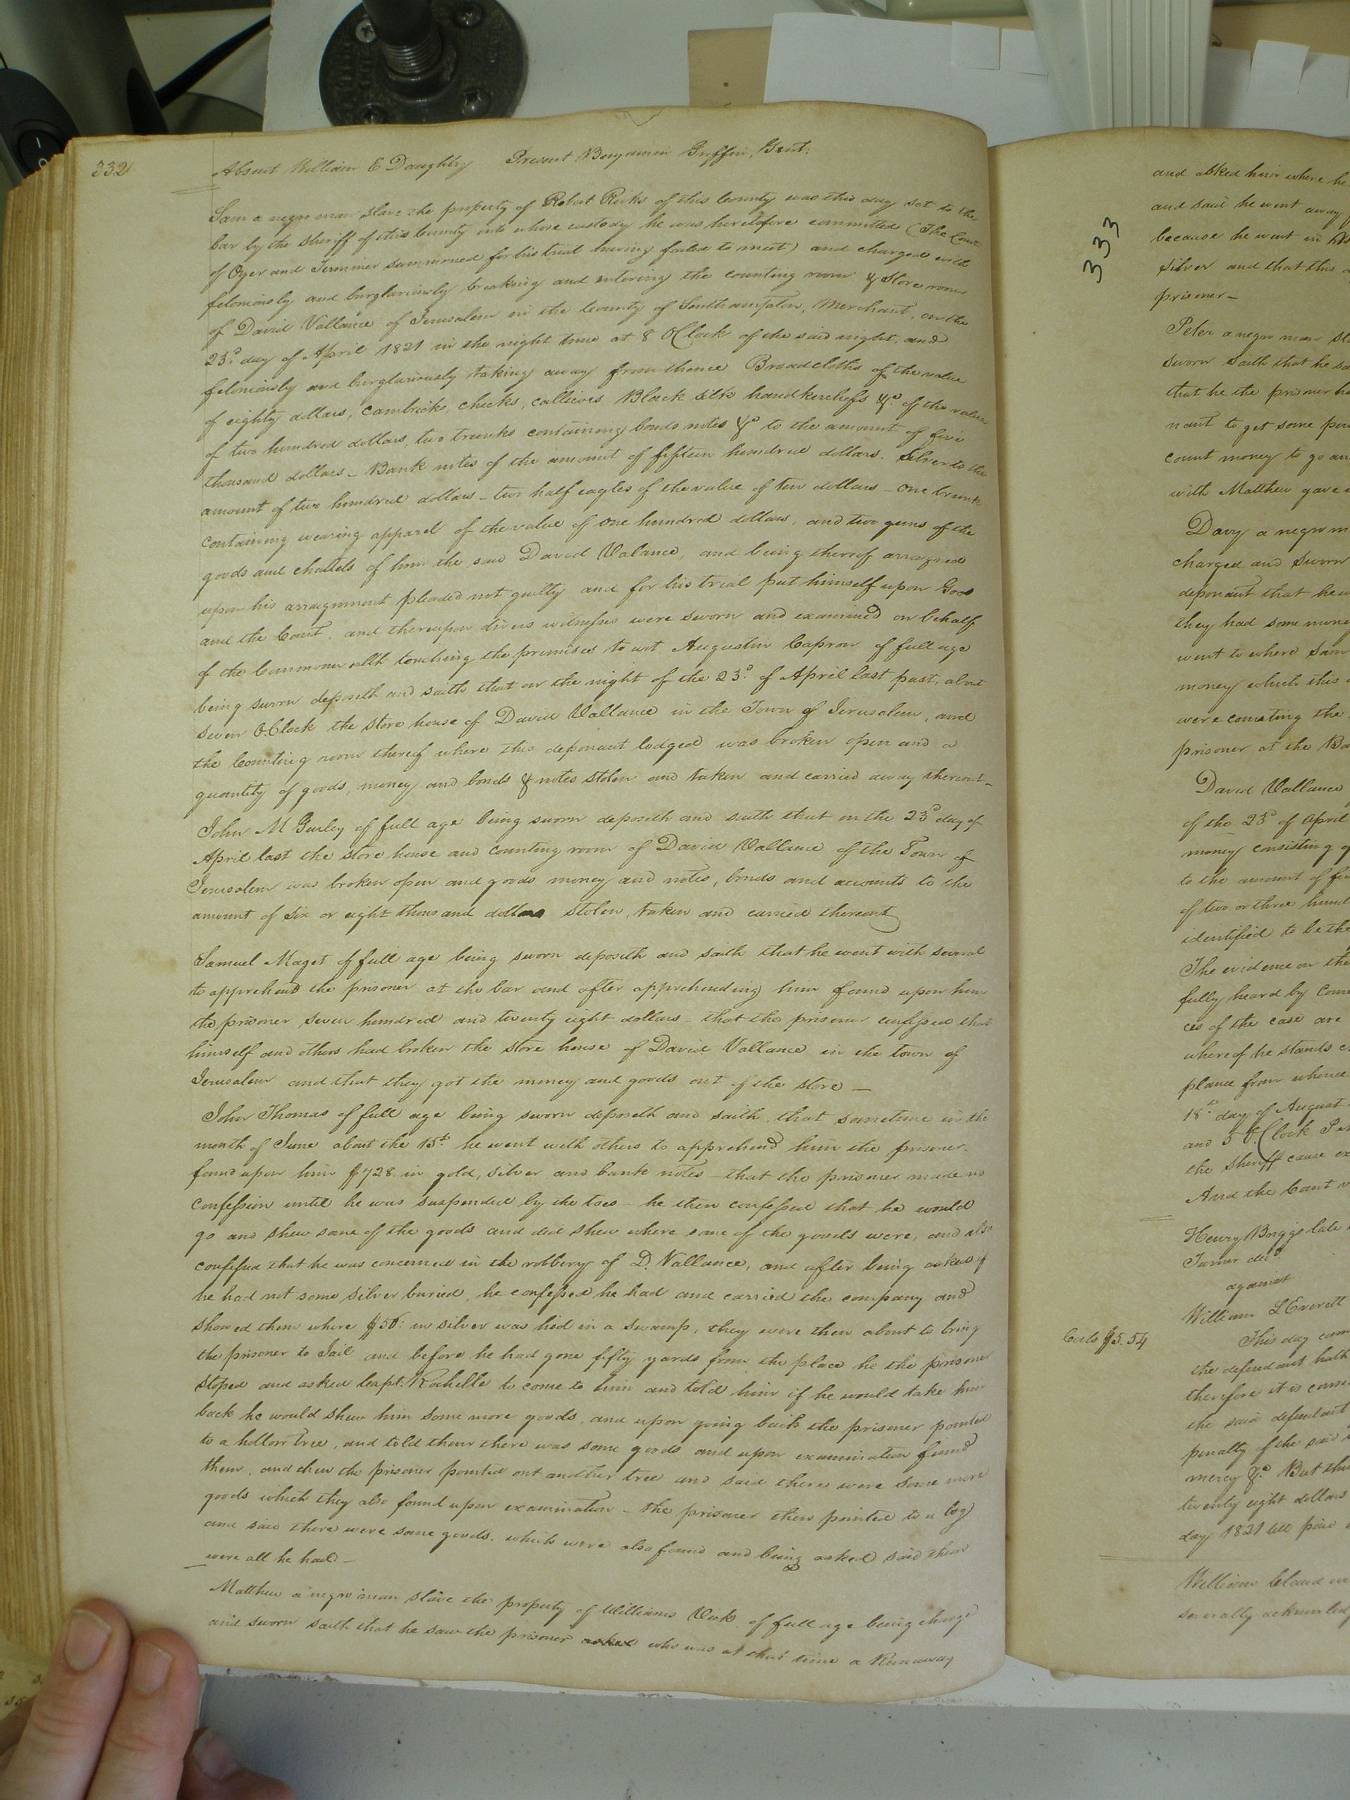 332
Absent William E Doughtry Present Benjamin Griffin, Gent.
Sam a negro man slave the property of Robert Ricks of this County was this day set to the
bar by the Sheriff of this County into whose custody he was heretofore committed (The Court
of Oyer and Terminer summoned for his trial having failed to meet) and charged with
feloniously and burglariously breaking and entering the counting room & Store room
of David Vallance of Jerusalem in the County of Southampton, Merchant, on the
23d day of April 1821 in the night time at 8 OClock of the said night, and
feloniously and burglariously taking away from thence Broadcloths of the value
of eighty dollars, cambricks, checks, callicoes Black silk handkercheifs &c of the value
of two hundred dollars, two trunks containing bonds notes &c to the amount of five
thousand dollars - Bank notes of the amount of fifteen hundred dollars. Silver to the
amount of two hundred dollars - two half eagles of the value of ten dollars - one trunk
containing wearing apparel of the value of one hundred dollars, and two guns of the
goods and chattels of him the said David Valance, and being thereof arraigned
upon his arraignment pleaded not guilty and for his trial put himself upon God
and the Court, and thereupon divers witnesses were sworn and examined on behalf
of the Commonwealth touching the premises to wit Augustin Capron of full age
being sworn deposeth and saith that on the night of the 23d of April last past, about
Seven OClock the store house of David Vallance in the Town of Jerusalem, and
the Counting room thereof where this deponant lodged was broken open and a
quantity of goods, money and bonds & notes stolen and taken and carried away thereout -
John M Gurley of full age being sworn deposeth and saith that on the 23d day of
April last the store house and counting room of David Vallance of the Town of
Jerusalem was broken open and goods money and notes, bonds and accounts to the
amount of six or eight thousand dollars stolen, taken and carried thereout
Samuel Maget of full age being sworn deposeth and saith that he went with several
to apprehend the prisoner at the bar and after apprehending him found upon him
the prisoner seven hundred and twenty eight dollars - that the prisoner confessed that
himself and others had broken the store house of David Vallance in the town of
Jerusalem and that they got the money and goods out of the store -
John Thomas of full age being sworn deposeth and saith, that sometime in the
month of June about the 15th he went with others to apprehend him the prisoner
found upon him $728 in gold, silver and bank notes - that the prisoner made no
confession until he was suspended by the toes - he then confessed that he would
go and shew some of the goods and did shew where some of the goods were, and also
confessed that he was concerned in the robbery of D. Vallance, and after being asked if
he had not some silver buried, he confessed he had and carried the company and
showed them where $50 in silver was hid in a swamp, they were then about to bring
the prisoner to Jail and before he had gone fifty yards from the place he the prisoner
stoped and asked Capt. Rochelle to come to him and told him if he would take him
back he would shew him some more goods, and upon going back the prisoner pointed
to a hollow tree, and told them there was some goods and upon examination found
them, and then the prisoner pointed out another tree and said there were some more
goods which they also found upon examination - the prisoner then pointed to a log
and said there were some goods, which were also found and being asked said them
were all he had -
Matthew a negro man slave the property of Williams Vick of full age being charged
and sworn saith that he saw the prisoner who was at that time a Runaway
333
and asked him where he
and said he went away
because he went in
silver and that this
prisoner -
Peter a negro man
sworn saith that he
that he the prisoner
nant to get some
count money to
with Matthew gave
Davy a negro
charged and sworn
deponant that he
they had some money
went to where Sam
money which this
were counting the
prisoner at the Ba
David Vallance
of the 23d of April
money consisting
to the amount of
of two or three
identified to be the
The evidence on the
fully heard by
ces of the case are
whereof he stands
plance from whence
18th day of August
and 5 OClock
the Sheriff cause
And the Court
Henry Briggs late
Turner decd
against
William L Everett
Costs $5.54
This day came
the defendant hath
therefore it is
the said defendant
penalty of the said
mercy &c But
twenty eight dollars
day 1821 till paid
William
severally acknowledg